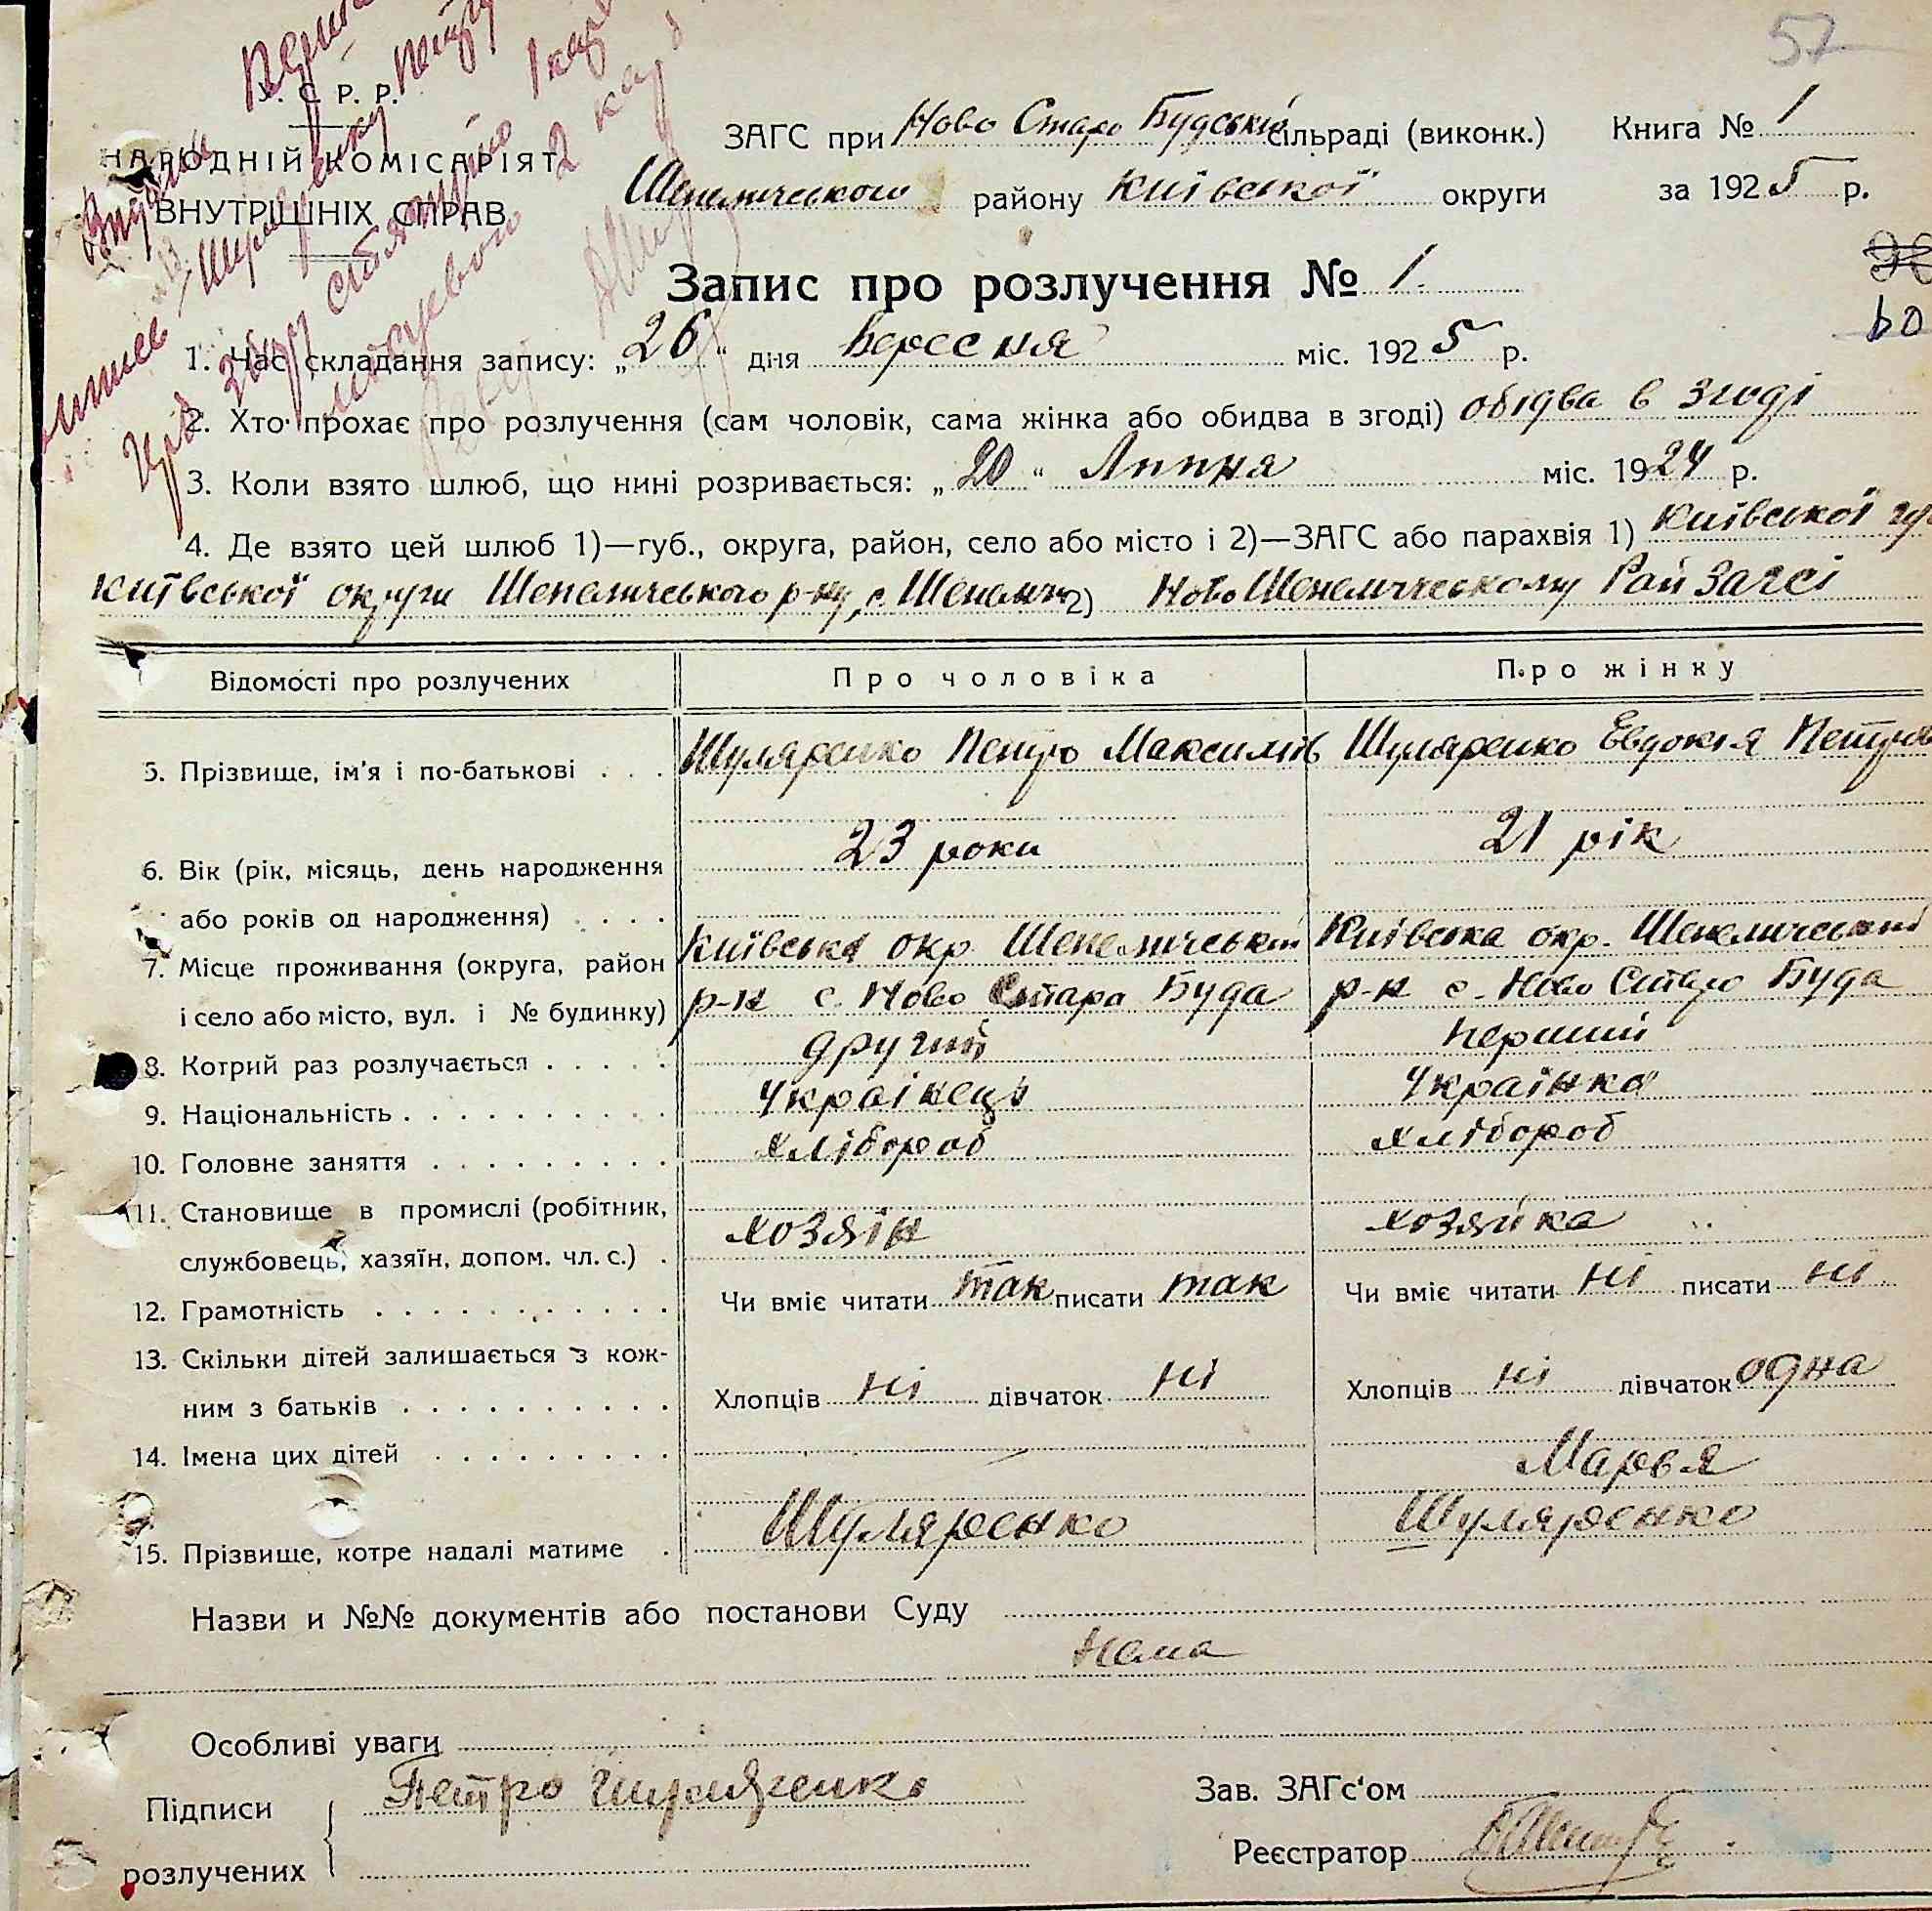 57
У. С. Р. Р.
НАРОДНІЙ КОМІСАРІЯТ
ВНУТРІШНІХ СПРАВ
ЗАГС при Ново Старо Будській сільраді (виконк.) Книга № 1
Шепеличського району Київської округи за 1925 р.
Запис про розлучення № 1.
60
1. Час складання запису: „26“ дня Вересня міс. 1925 р.
2. Хто прохає про розлучення (сам чоловік, сама жінка або обидва в згоді) обідва в згоді
3. Коли взято шлюб, що нині розривається: „20“ Липня міс. 1924 р.
4. Де взято цей шлюб 1)—губ., округа, район, село або місто і 2)—ЗАГС або парахвія 1) Київської
Київської округи Шепеличського р-ну, с. Шепеличи 2) Ново Шепелическому Рай Загсі
Відомості про розлучених Про чоловіка Про жінку
5. Прізвище, ім'я і по-батькові . . . Шуляренко Петро Максимів Шуляренко Евдокія Петров
6. Вік (рік, місяць, день народження 23 роки 21 рік
або років од народження) . . . .
7. Місце проживання (округа, район Київська окр. Шепеличський Київська окр. Шепелический
і село або місто, вул. і № будинку) р-н с. Ново Стара Буда р-н с. Ново Старо Буда
8. Котрий раз розлучається . . . . . другий первий
9. Національність . . . . . . . . . . Українець Українка
10. Головне заняття . . . . . . . . . хлібороб хлібороб
11. Становище в промислі (робітник,
службовець, хазяїн, допом. чл. с.) . хозяін хозяйка
12. Грамотність . . . . . . . . . . . Чи вміє читати так писати так Чи вміє читати ні писати ні
13. Скільки дітей залишається з кож-
ним з батьків . . . . . . . . . . Хлопців ні дівчаток ні Хлопців ні дівчаток одна
14. Імена цих дітей . . . . . . . . . Марья
15. Прізвище, котре надалі матиме . Шуляренко Шуляренко
Назви и №№ документів або постанови Суду
Нема
Особливі уваги
Підписи Петро Шуляренко Зав. ЗАГс'ом
розлучених Реєстратор